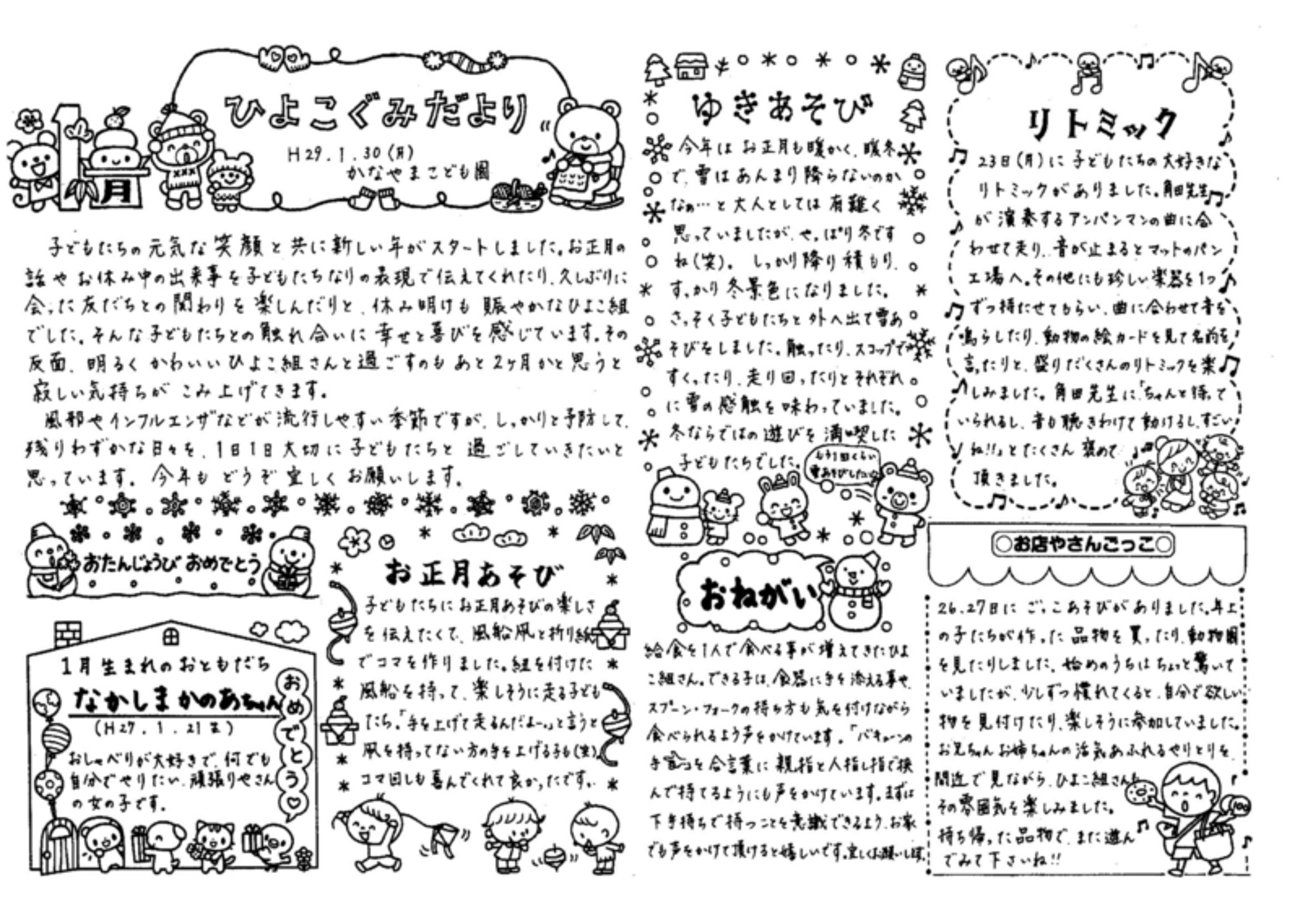 1月
ひよこぐみだより
H29.1.30(月)
かなやまこども園
子どもたちの元気な笑顔と共に新しい年がスタートしました。お正月の
話やお休み中の出来事を子どもたちなりの表現で伝えてくれたり、久しぶりに
会った友だちとの関わりを楽しんだりと、休み明けも賑やかなひよこ組
でした。そんな子どもたちとの触れ合いに幸せと喜びを感じています。その
反面、明るくかわいいひよこ組さんと過ごすのもあと2ヶ月かと思うと
寂しい気持ちがこみ上げてきます。
風邪やインフルエンザなどが流行しやすい季節ですが、しっかりと予防して、
残りわずかな日々を、1日1日大切に子どもたちと過ごしていきたいと
思っています。今年もどうぞ宜しくお願いします。
おたんじょうび おめでとう
1月生まれのおともだち
なかしまかのあちゃん
(H27.1.21生)
おしゃべりが大好きで、何でも
自分でやりたい、頑張りやさん
の女の子です。
おめでとう♡
お正月あそび
子どもたちにお正月あそびの楽しさ
を伝えたくて、風船凧と折り紙
でコマを作りました。紐を付けた
風船を持って、楽しそうに走る子ども
たち。「手を上げて走るんだよー。」と言うと
凧を持ってない方の手を上げる子も(笑)。
コマ回しも喜んでくれて良かったです。
ゆきあそび
今年はお正月も暖かく、暖冬
で、雪はあんまり降らないのか
なぁ…と大人としては有難く
思っていましたが、やっぱり冬です
ね(笑)。しっかり降り積もり、
すっかり冬景色になりました。
さっそく子どもたちと外へ出て雪あ
そびをしました。触ったり、スコップで
すくったり、走り回ったりとそれぞれ
に雪の感触を味わっていました。
冬ならではの遊びを満喫した
子どもたちでした。
もう1回くらい
雪あそびしたいな
おねがい
給食を1人で食べる事が増えてきたひよ
こ組さん。できる子は、食器に手を添える事や、
スプーン・フォークの持ち方も気を付けながら
食べられるよう声をかけています。「バキューンの
手」を合言葉に親指と人指し指で挟
んで持てるようにも声をかけています。まずは
下手持ちで持つことを意識できるよう、お家
でも声をかけて頂けると嬉しいです。宜しくお願いします。
リトミック
23日(月)に子どもたちの大好きな
リトミックがありました。角田先生
が演奏するアンパンマンの曲に合
わせて走り、音が止まるとマットのパン
工場へ。その他にも珍しい楽器を1つ
ずつ持たせてもらい、曲に合わせて音を
鳴らしたり、動物の絵カードを見て名前を
言ったりと、盛りだくさんのリトミックを楽
しみました。角田先生に「ちゃんと待って
いられるし、音も聴きわけて動けるし、すごい
ね!!」とたくさん褒めて
頂きました。
お店やさんごっこ
26、27日にごっこあそびがありました。年上
の子たちが作った品物を買ったり、動物園
を見たりしました。始めのうちはちょっと驚いて
いましたが、少しずつ慣れてくると、自分で欲しい
物を見付けたり、楽しそうに参加していました。
お兄ちゃんお姉ちゃんの活気あふれるやりとりを、
間近で見ながら、ひよこ組さんも
その雰囲気を楽しみました。
持ち帰った品物で、また遊ん
でみて下さいね!!
100